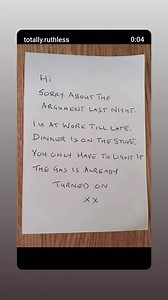 totally.ruthless
0:04
Hi
Sorry about the
argument last night.
I'm at work till late,
Dinner is on the stove,
You only have to light it
The gas is already
turned on
xx